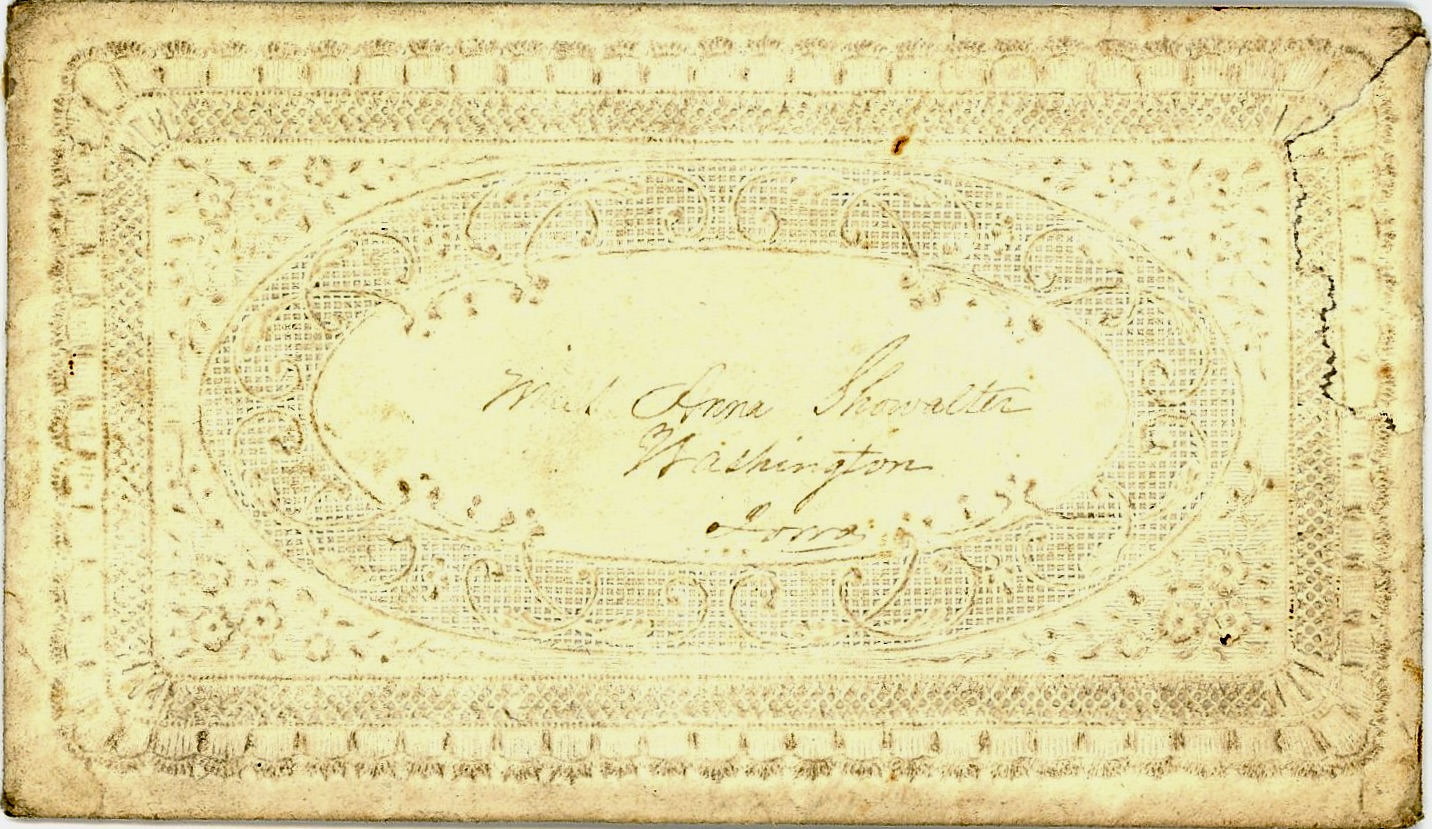 Miss Anna Showalter
Washington
Iowa